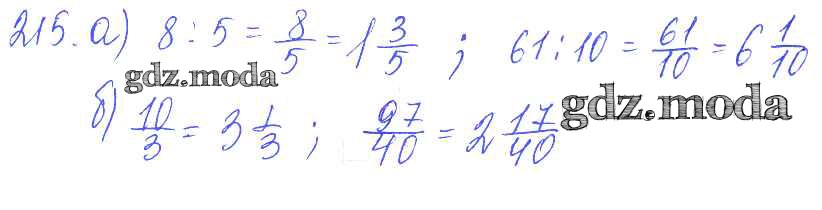 215. а) 8 : 5 = 8/5 = 1 3/5 ; 61 : 10 = 61/10 = 6 1/10
gdz.moda
б) 10/3 = 3 1/3 ; 97/40 = 2 17/40
gdz.moda